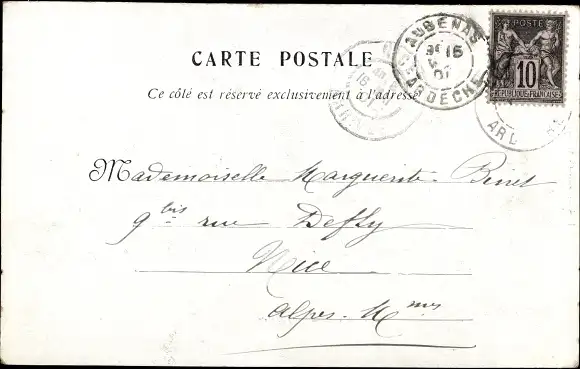 CARTE POSTALE
Ce côté est réservé exclusivement à l'adresse
POSTE
10
REPUBLIQUE FRANÇAISE
AUBENAS
15
01
ARDECHE
16
ARD
Mademoiselle Marguerite Binet
9 bis rue Defly
Nice
Alpes Mmes